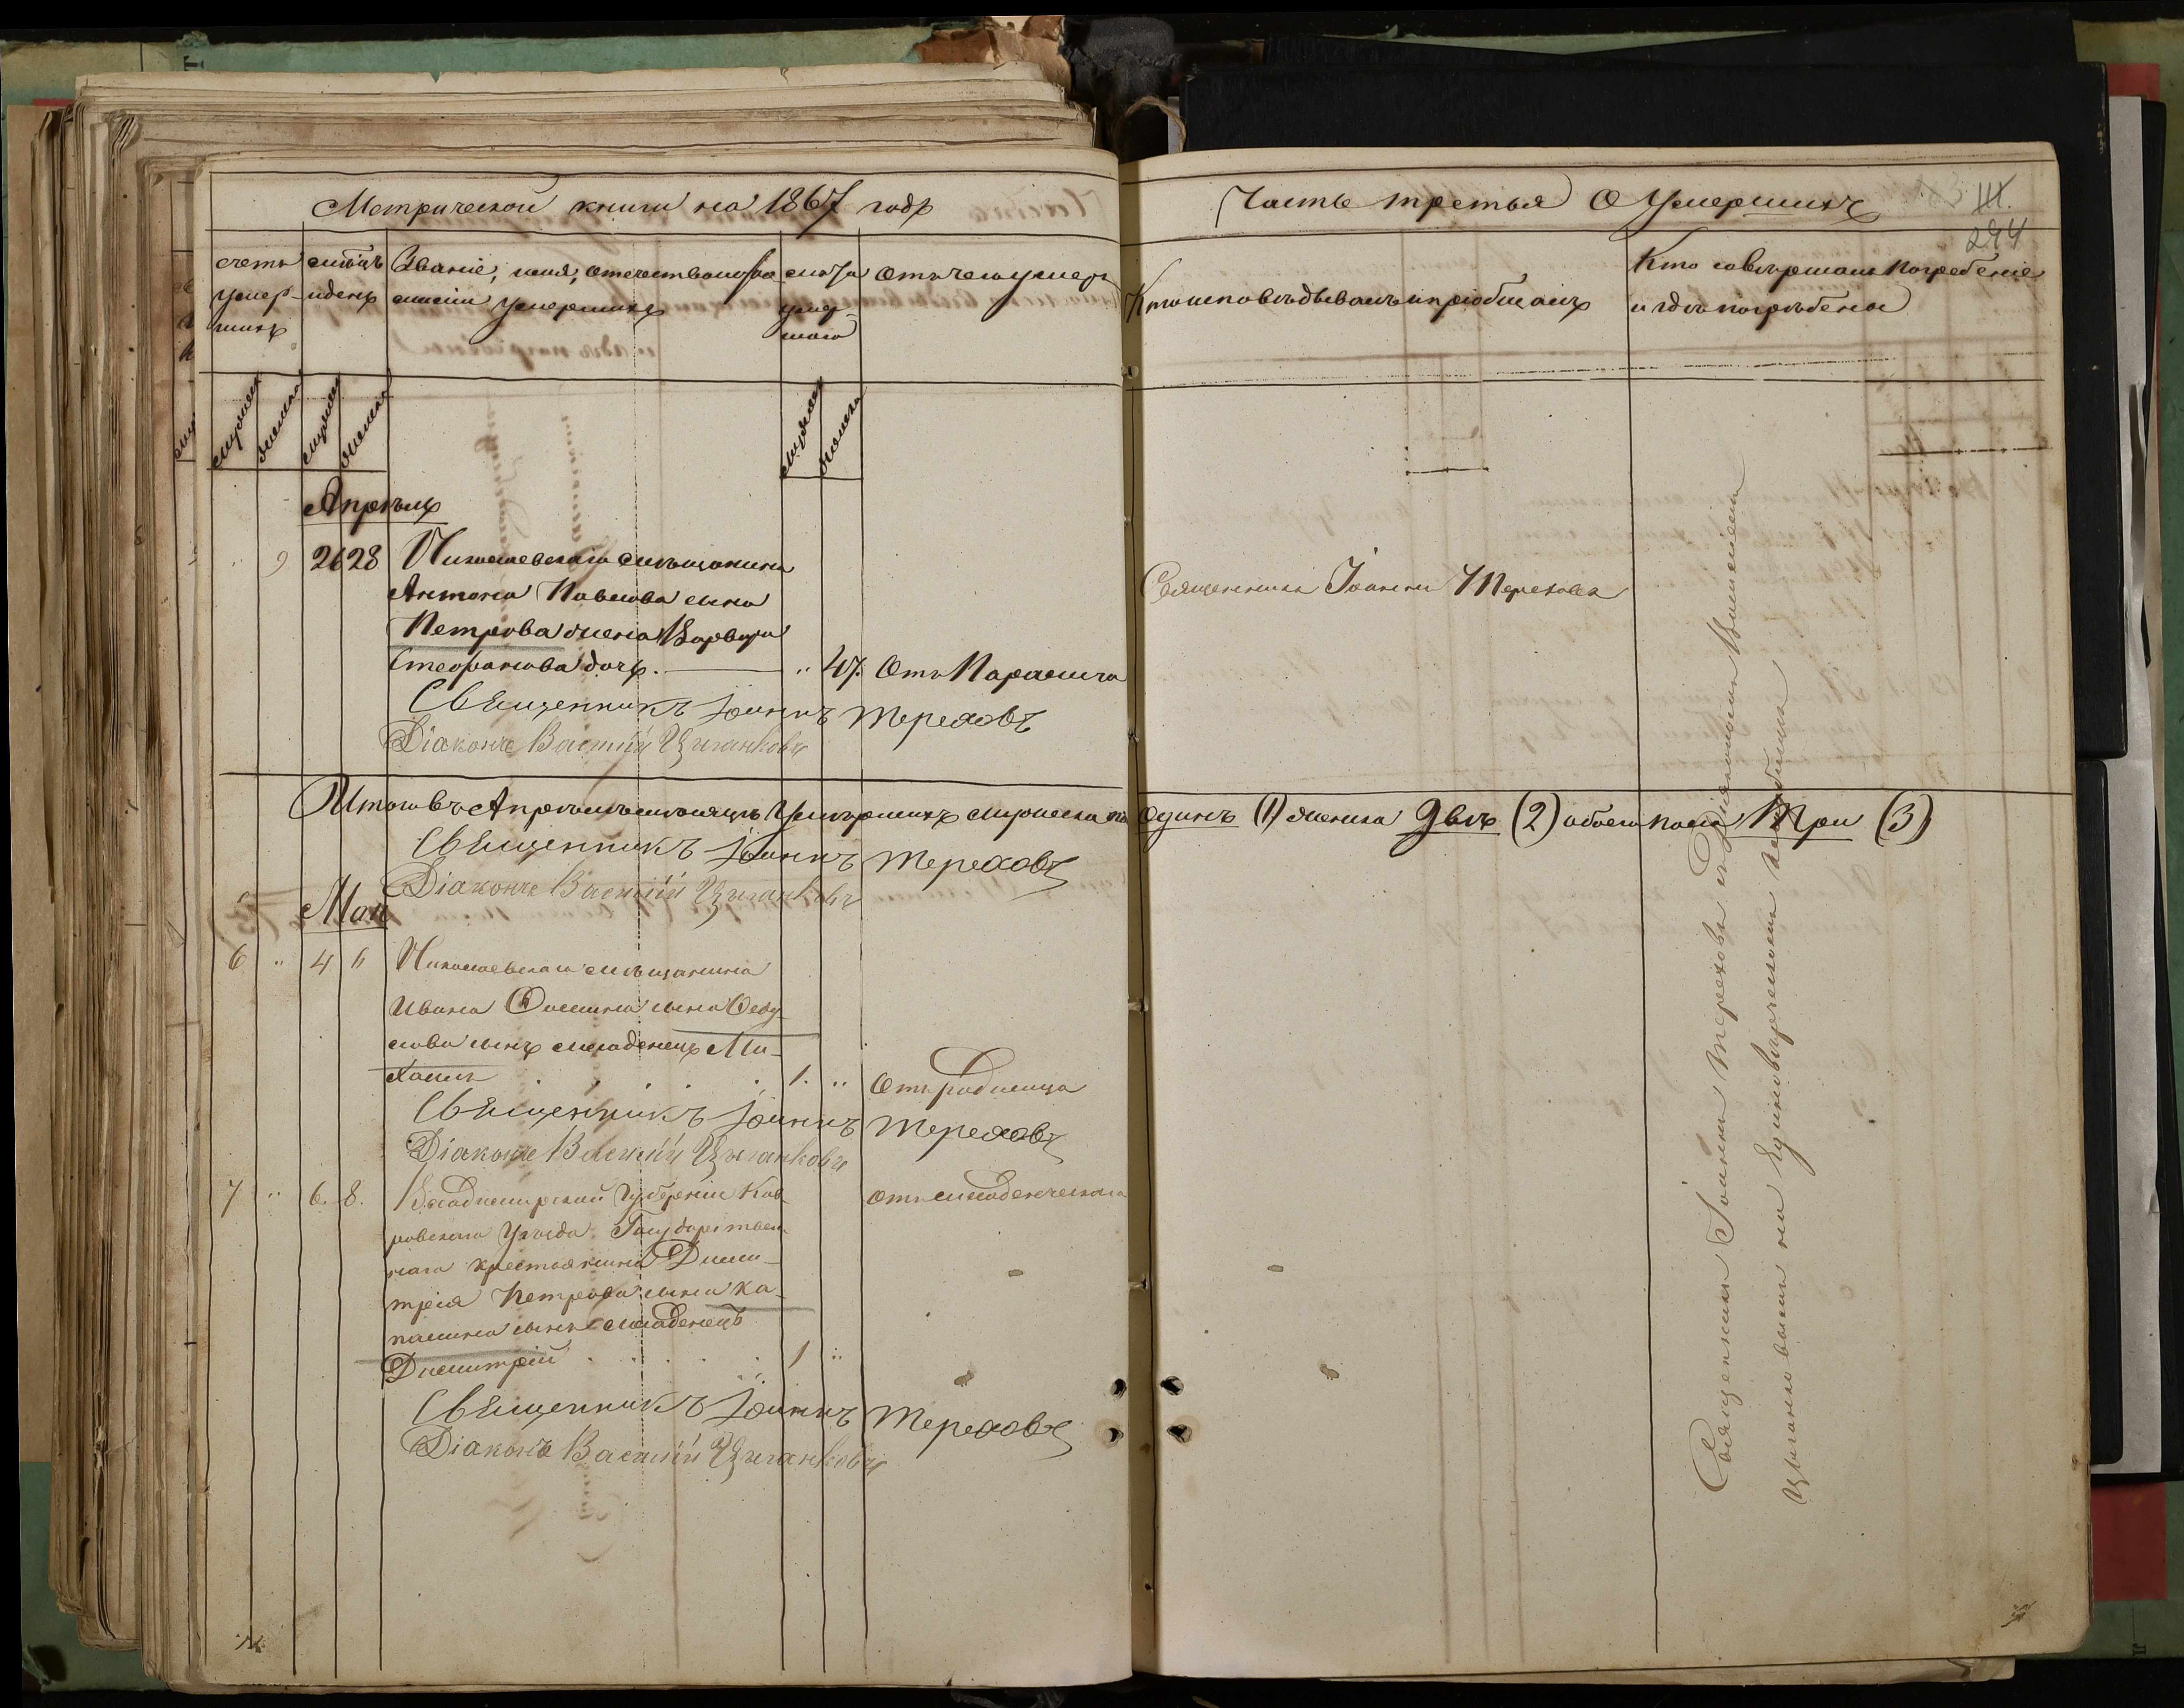 Метрической книги на 1867 годъ
Часть третья О Умершихъ
III.
294
счетъ умер-
шихъ
мѣсяцъ
и день
Званіе, имя, отечество и фа
милія умершихъ
лѣта
умер-
шаго
Отъ чего умеръ
Кто исповѣдывалъ и пріобщалъ
Кто совершалъ погребеніе
и гдѣ погребены
мужеска
женска
мужеска
женска
мужеска
женска
Апрѣль
9 26 28 Николаевскаго мѣщанина
Антона Павлова сына
Петрова жена Варвара
Стефанова дочь. 47. Отъ Паралича
Священникъ Іоаннъ Тереховъ
Священникъ Іоаннъ Тереховъ
Діаконъ Василій Цыганковъ
Итого въ Апрѣлѣ мѣсяцѣ Умершихъ мужеска по одинъ (1) женска Двѣ (2) обоего пола Три (3)
Священникъ Іоаннъ Тереховъ
Діаконъ Василій Цыганковъ
Май
6 4 6 Николаевскаго мѣщанина
Ивана Фомина сына Веду-
лова сынъ младенецъ Ми-
хаилъ 1. Отъ родимца
Священникъ Іоаннъ Тереховъ
Діаконъ Василій Цыганковъ
7 6. 8. Владимірской Губерніи Ков-
ровскаго Уѣзда Государствен-
наго крестьянина Дими-
трія Петрова сына Ка-
пашина сынъ младенецъ
Димитрій 1
отъ младенческаго
Священникъ Іоаннъ Тереховъ
Діаконъ Василій Цыганковъ
Священникъ Іоаннъ Тереховъ съ Діакономъ Василіемъ
Цыганковымъ на Единовѣрческомъ кладбищѣ